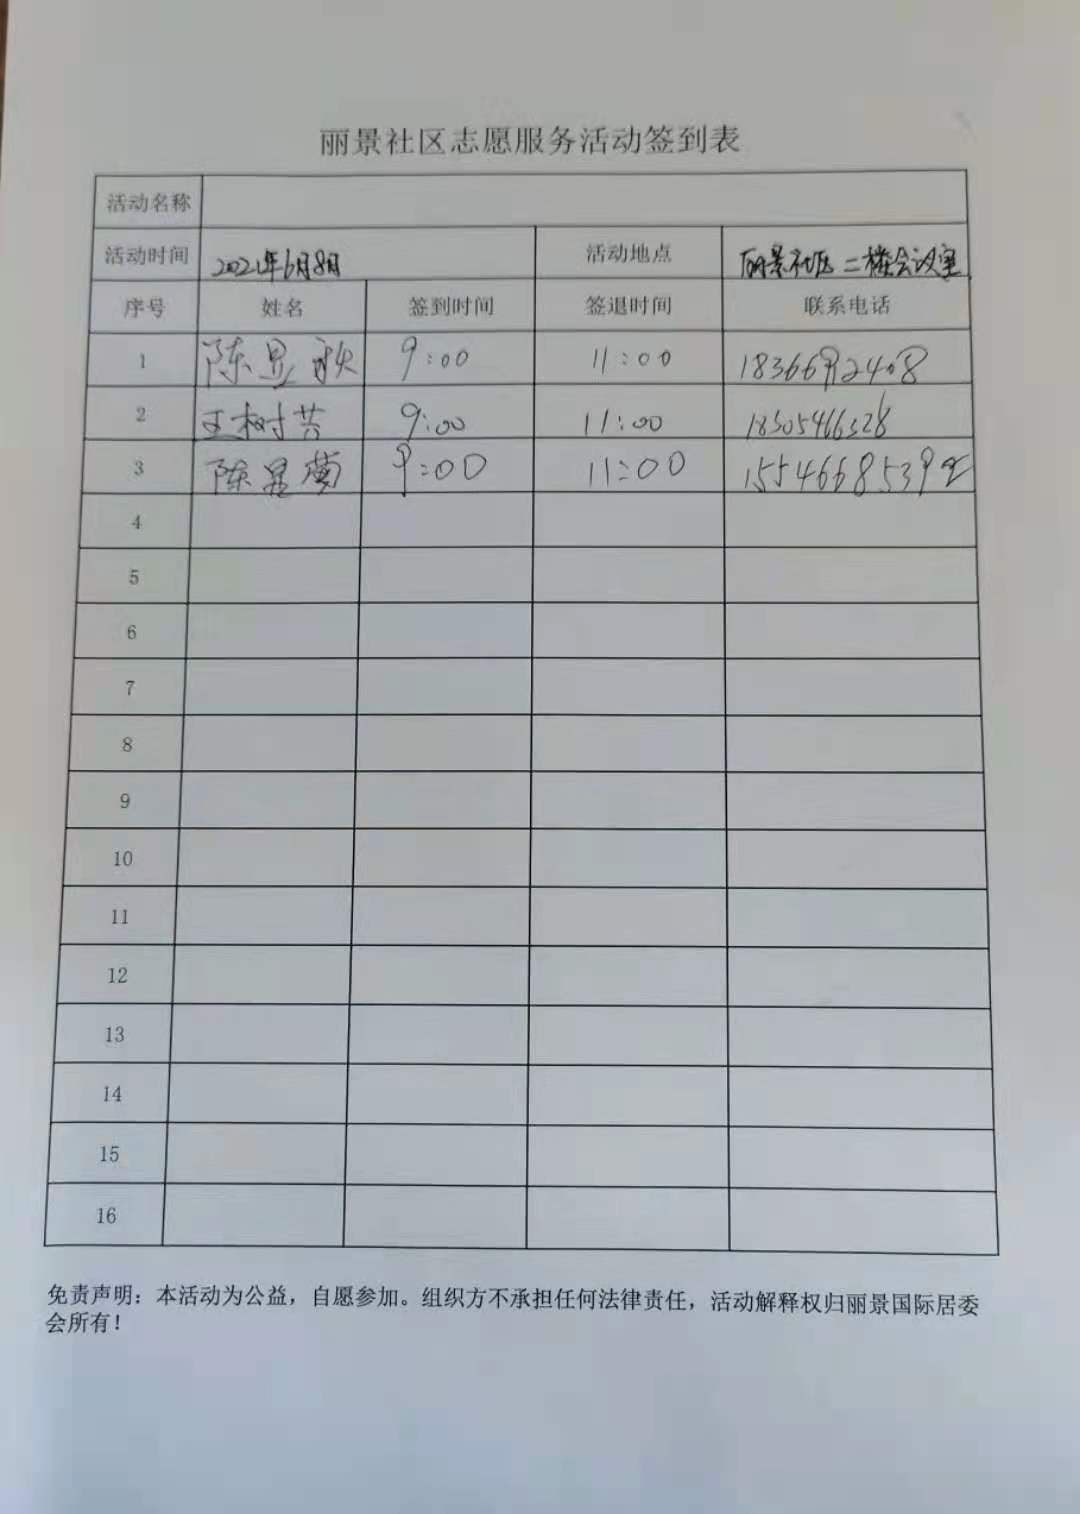 丽景社区志愿服务活动签到表
活动名称
活动时间 2021年6月8日 活动地点 丽景社区二楼会议室
序号 姓名 签到时间 签退时间 联系电话
1 陈显秋 9:00 11:00
2 王树芸 9:00 11:00 18305466328
3 陈显菊 9:00 11:00
4
5
6
7
8
9
10
11
12
13
14
15
16
免责声明：本活动为公益，自愿参加。组织方不承担任何法律责任，活动解释权归丽景国际居委
会所有！